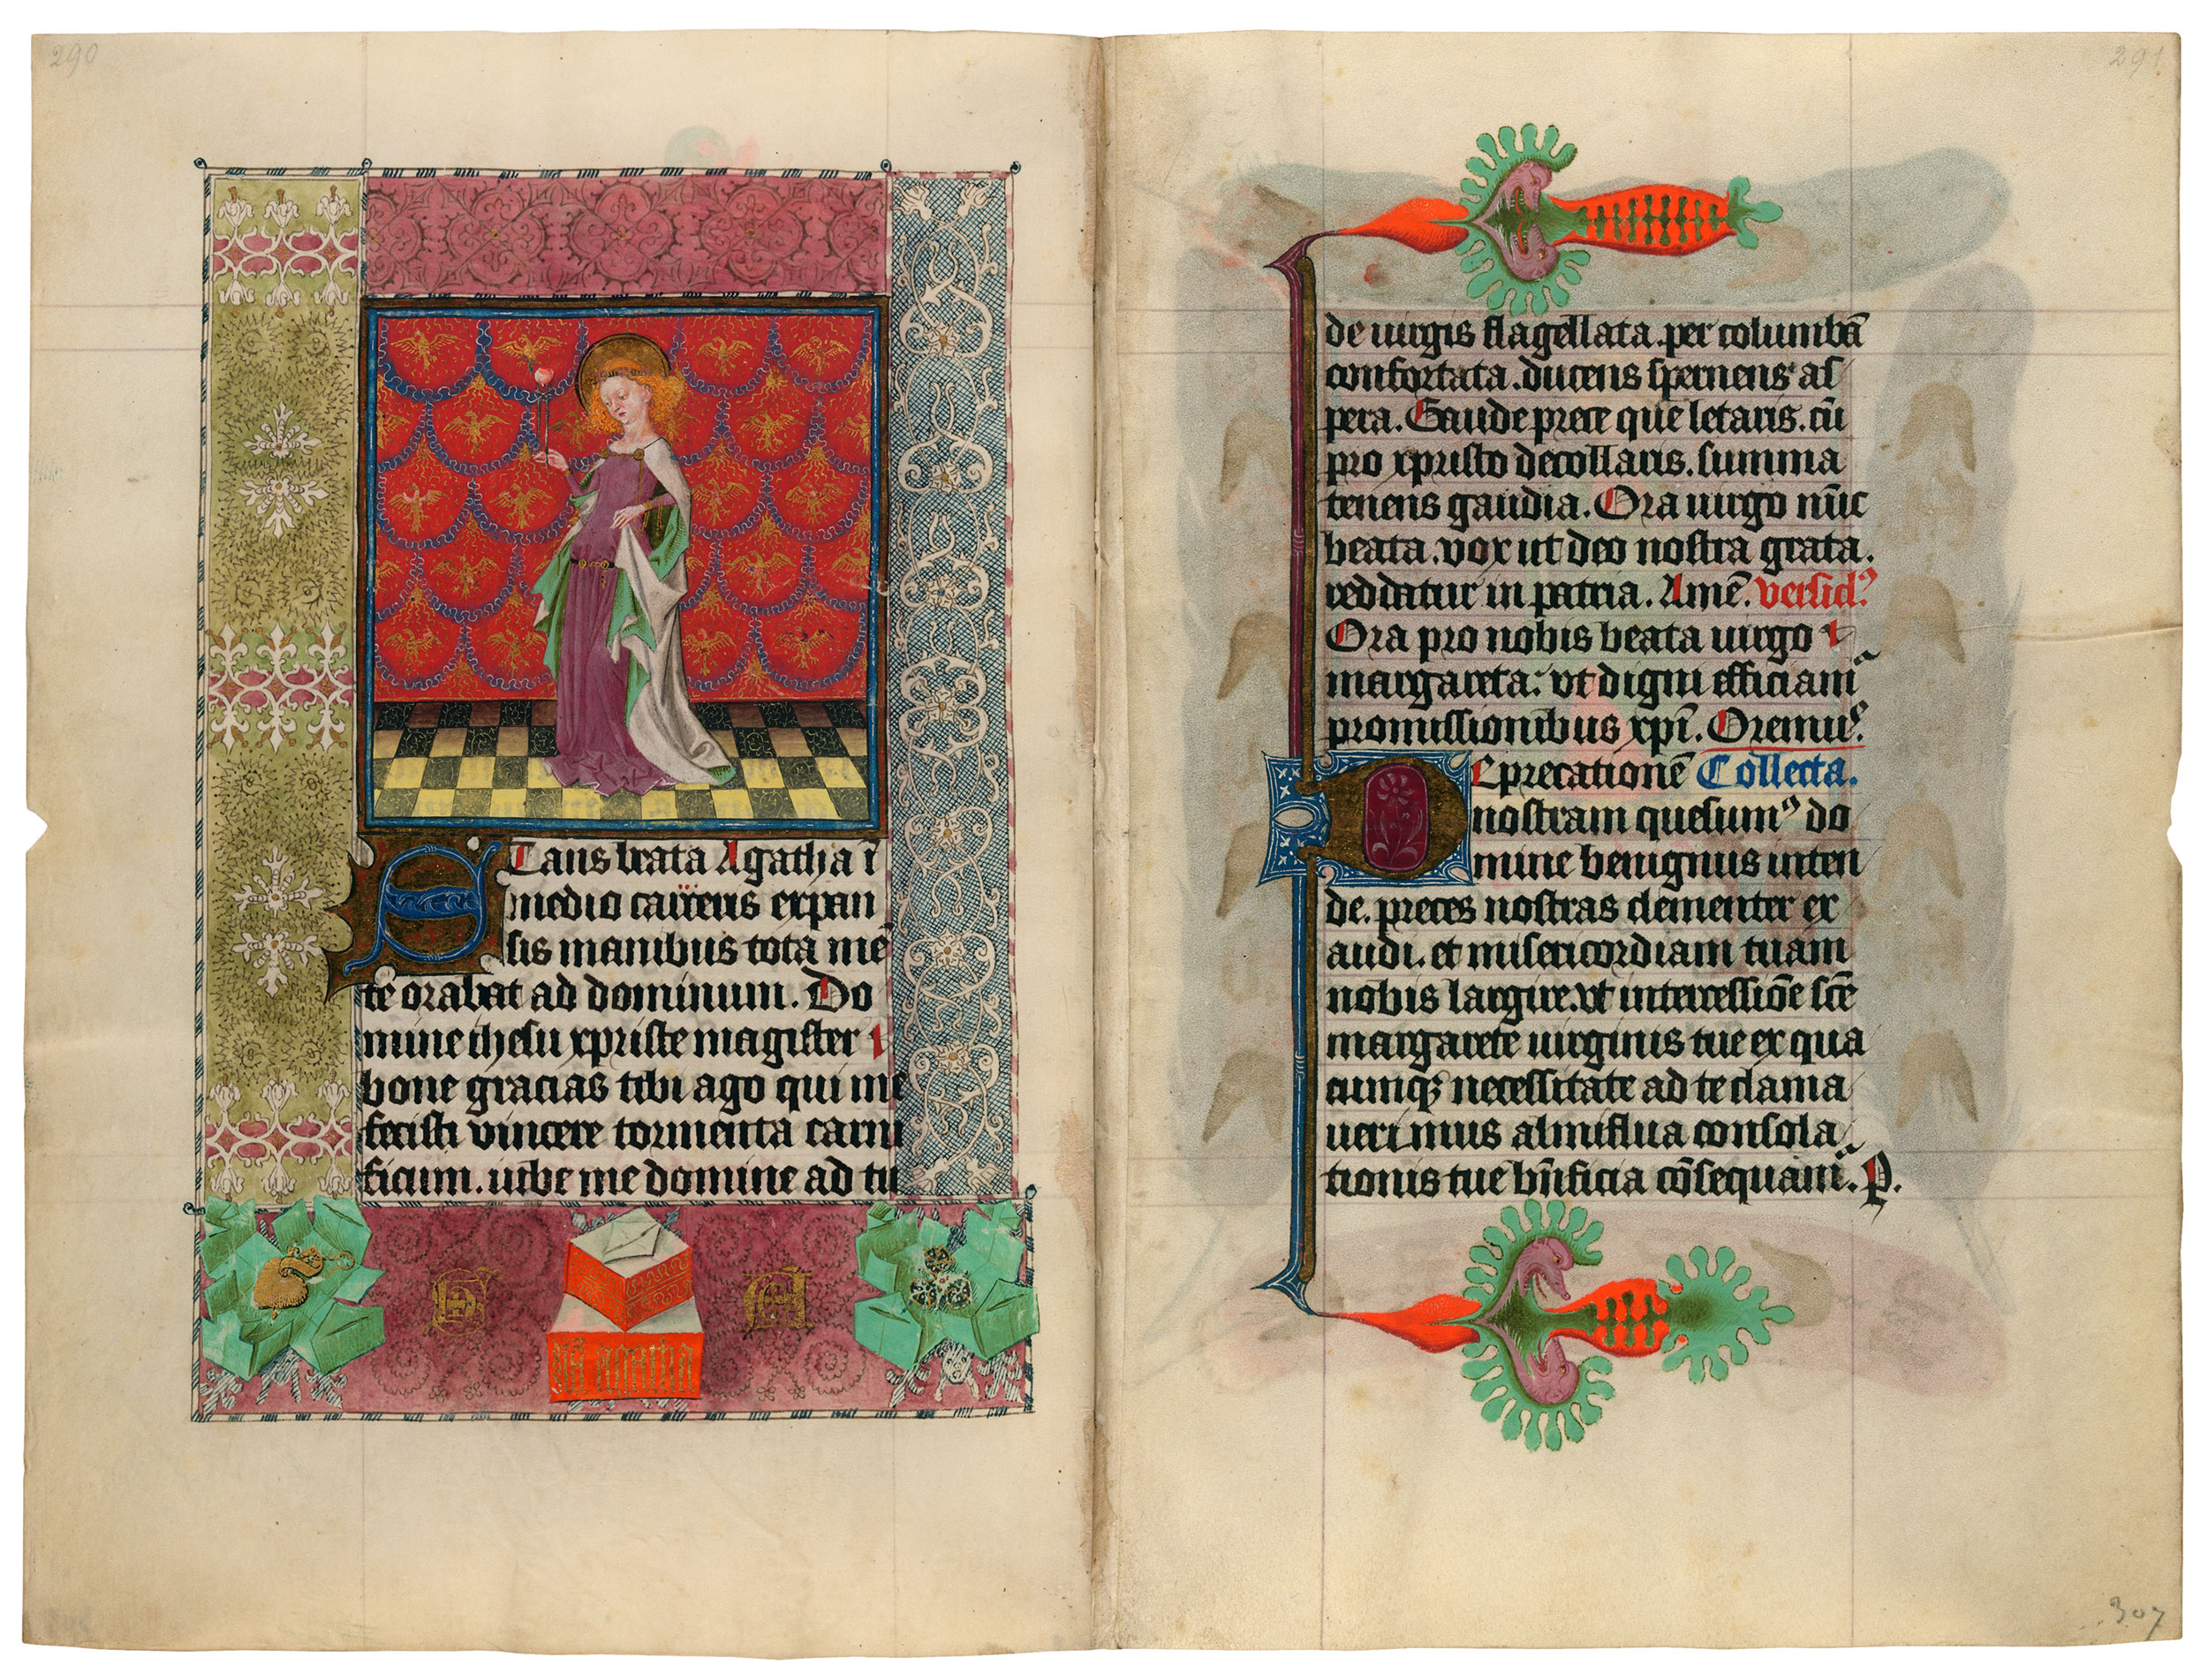 290
Stans beata Agatha ī
medio carceris expan
sis manibus tota mē
te orabat ad dominum. Do
mine ihesu xpriste magister
bone gracias tibi ago qui me
fecisti vincere tormenta carni
ficum. iube me domine ad tu
S A
agatha
291
de uirgis flagellata. per columbā
confortata. ducens spernens as
pera. Gaude prece que letaris. cū
pro xpristo decollaris. summa
tenens gaudia. Ora uirgo nūc
beata. vox ut deo nostra grata.
reddatur in patria. Amē. versicl᾿
Ora pro nobis beata uirgo
margareta: vt digni efficiam᷑
promissionibus xpī. Oremus.
Deprecationē Collecta.
nostram quesumꝰ do
mine benignus inten
de. preces nostras clementer ex
audi. et misericordiam tuam
nobis largire. vt intercessiōe scē
margarete uirginis tue ex qua
cumqꝫ necessitate ad te clama
uerimus almiflua consola
tionis tue bn̄ficia cōsequam᷑. P.
307